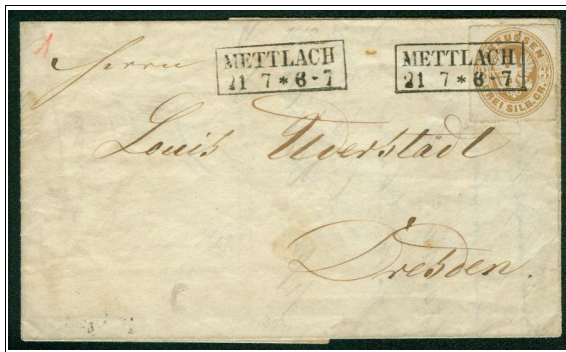 1
Herrn
METTLACH
21 7 * 6-7
METTLACH
21 7 * 6-7
PREUSSEN
DREI SILB. GR.
Louis
Dresden.